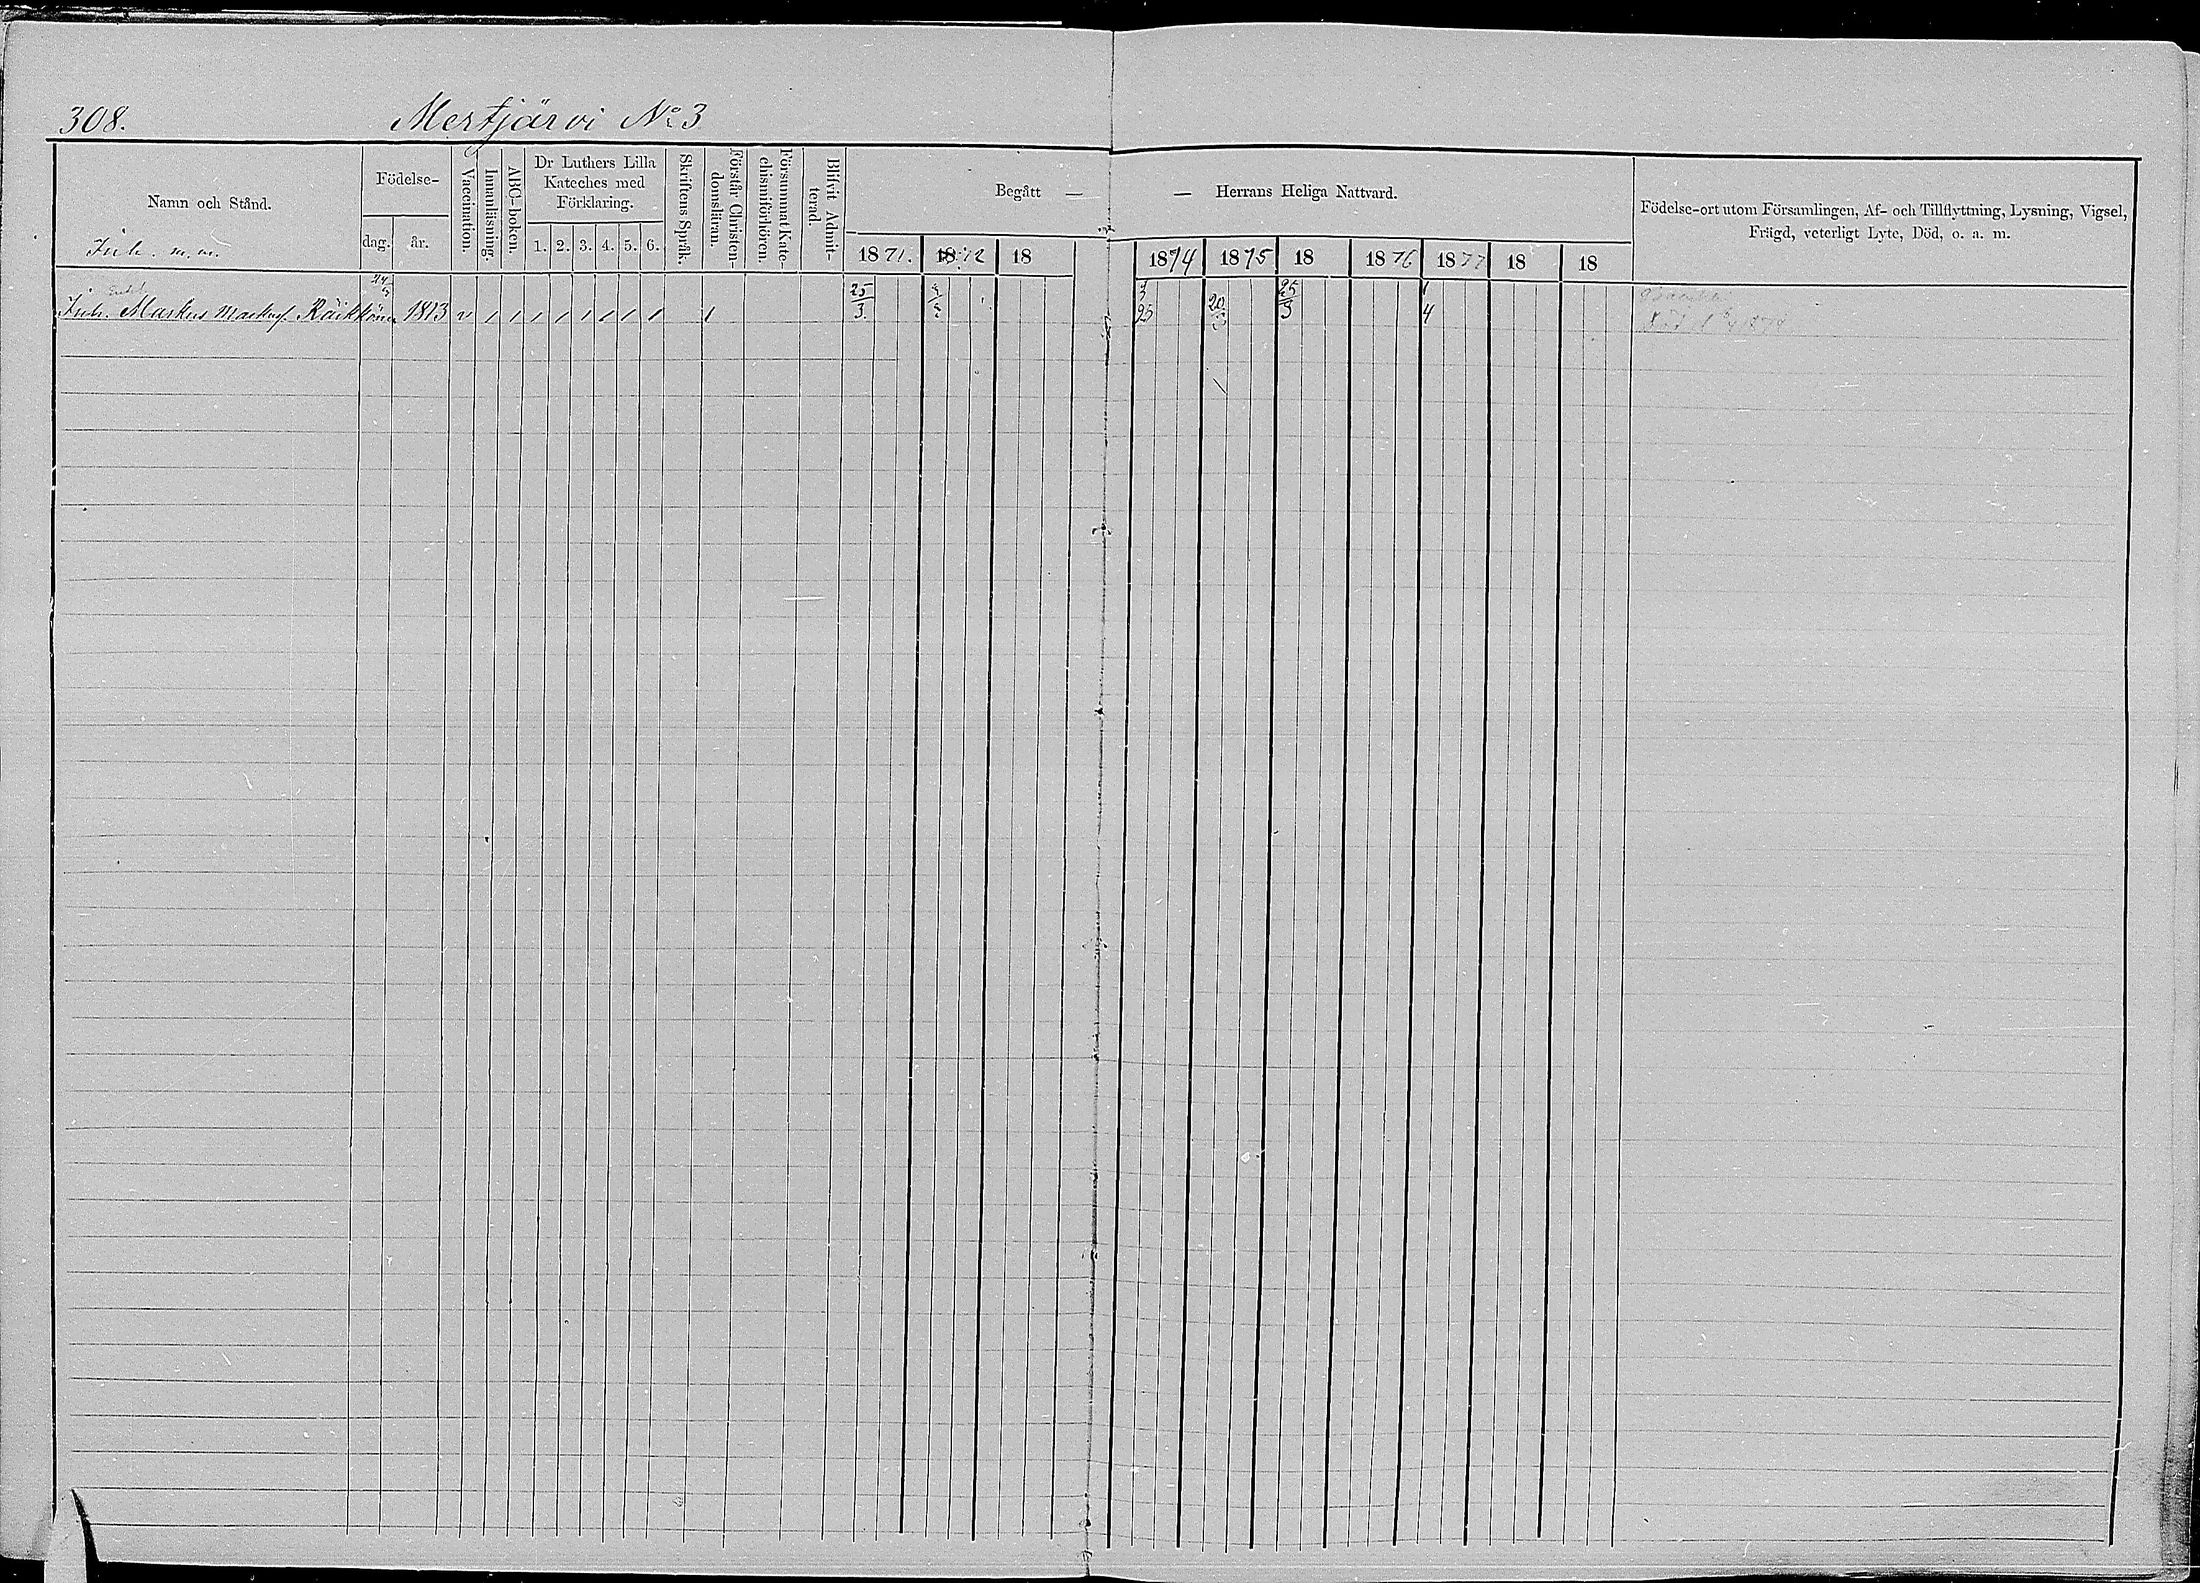 308. Mertjärvi No 3
Namn och Stånd.
Födelse-
dag. år.
Vaccination.
Innanläsning.
ABC-boken.
Dr Luthers Lilla
Kateches med
Förklaring.
1. 2. 3. 4. 5. 6.
Skriftens Språk.
Förstår Christen-
domsläran.
Försummat Kate-
chismiförhören.
Blifvit Admit-
terad.
Begått — — Herrans Heliga Nattvard.
1871. 1872 18 1874 1875 18 1876 1877 18 18
Födelse-ort utom Församlingen, Af- och Tillflyttning, Lysning, Vigsel,
Frägd, veterligt Lyte, Död, o. a. m.
Inh. m. m.
Inh. Markus Markusf. Räikkönen 1813 v 1 1 1 1 1 1 1 1 1 25/3 3/25 20 25/3 1/4
Död